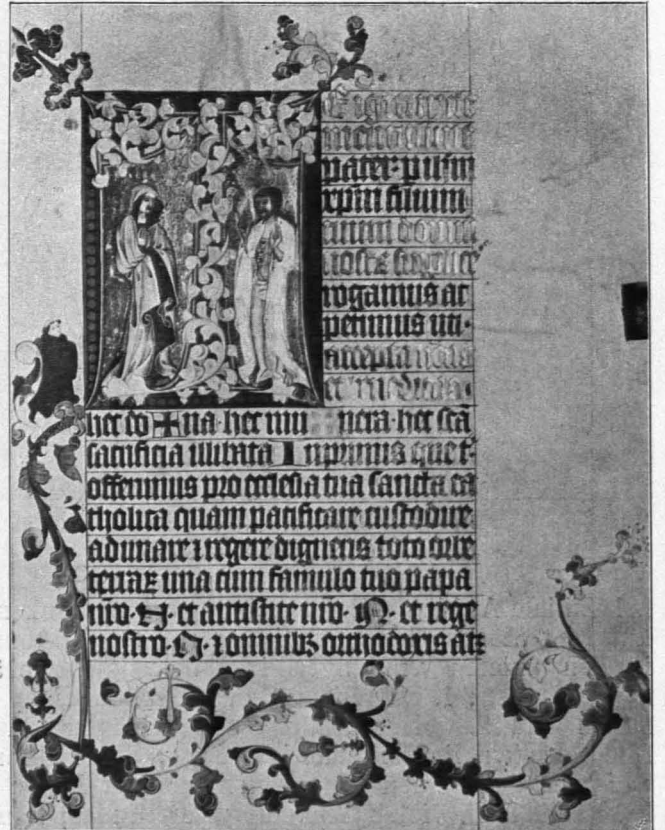 mentissime
pater· p ihm
xpm filium
tuum domi
nostrꝝ supplices
rogamus ac
petimus uti·
accepta
et
hec do ✚ na· hec mu nera· hec scā
sacrificia illibata In primis que t̉·
offerimus pro ecclesia tua sancta ca
tholica quam pacificare custodire
adunare ⁊ regere digneris toto orbe
terraꝝ una cum famulo tuo papa
nr̄o· N· et antistite nr̄o· N· et rege
nostro· N· ⁊ omnibꝫ orthodoxis atꝫ